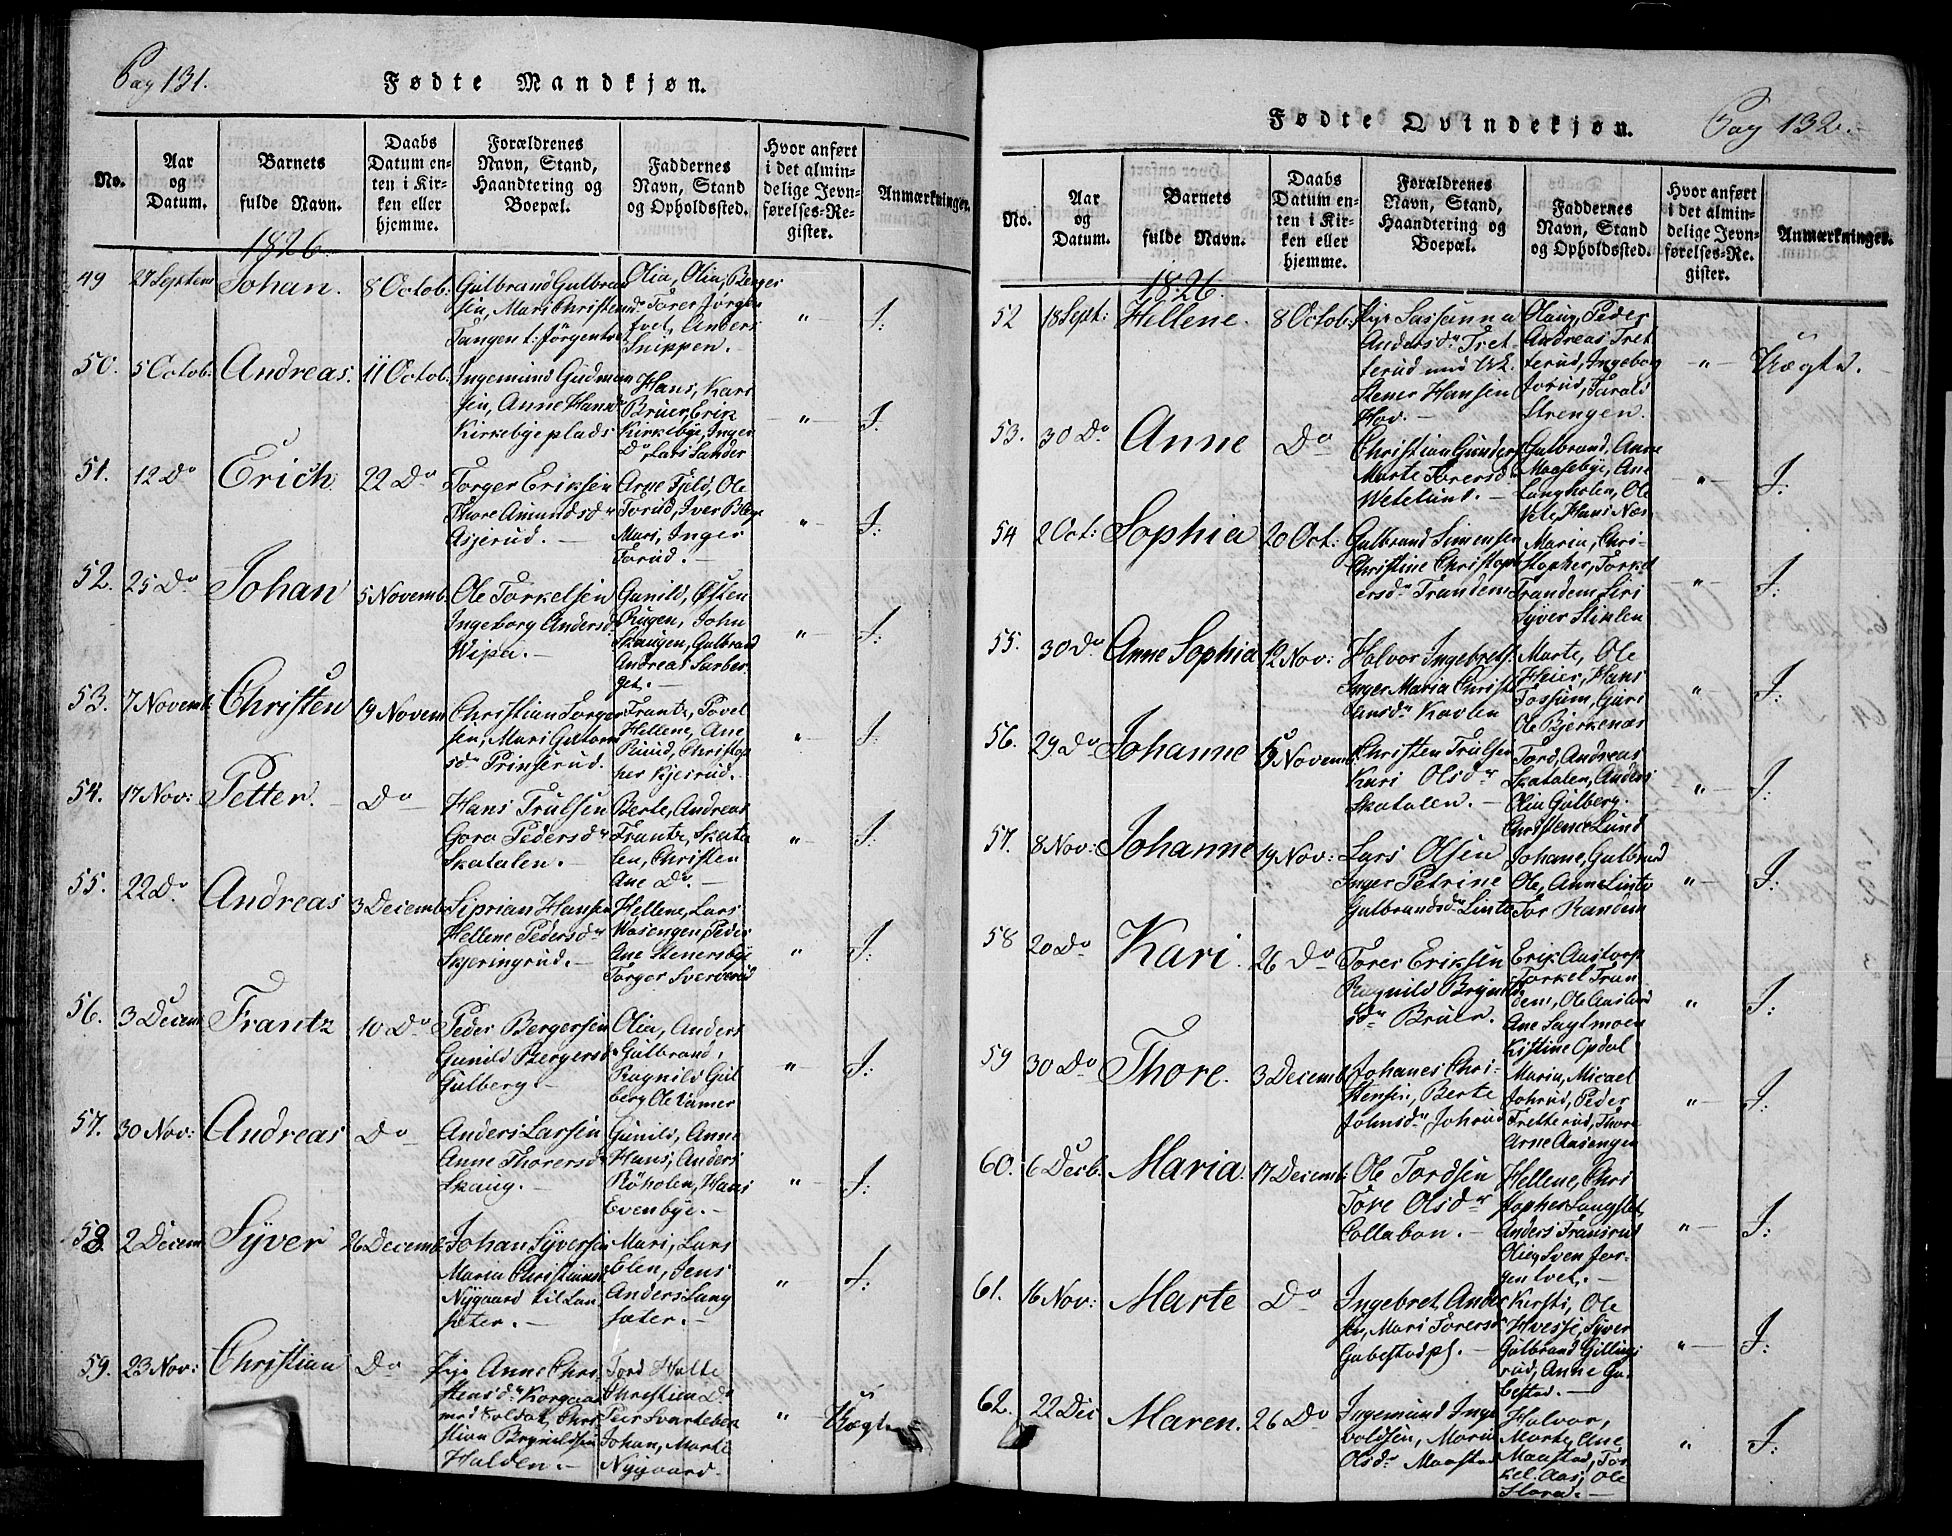 Pag 131.
Fødte Mandkjøn.
No.
Aar
og
Datum.
Barnets
fulde Navn.
Daabs
Datum en-
ten i Kir-
ken eller
hjemme.
Forældrenes
Navn, Stand,
Haandtering og
Boepæl.
Faddernes
Navn, Stand
og Opholdssted.
Hvor anført
i det almin-
delige Jevn-
førelses-Re-
gister.
Anmærkninger.
1826
49 27 Septem Johan. 8 Octob: Gulbrand Gulbrand
sen, Mari Christens
Tangen t: Jörgentvet
Olia, Olia, Berger
Torer Jörgen
tvet, Anders
Snippen.
"
I.
50. 5 Octob: Andreas. 11 Octob: Ingemund Gudmun
sen, Anne Hansd
Kirkebye plads
Hans, Kari
Bruer, Erik
Kirkebye, Inger
Do, Lars Sander
"
I.
51. 12 Do Erich 22 Do Torger Eriksen
Thore Amundsdr
Asjerud.
Arne Fjeld, Ole
Torud, Iver
Mari, Inger
Torud.
"
I.
52. 25 Do Johan 5 Novemb. Ole Torkelsen
Ingeborg Andersd
Wipa.
Gunild, Østen
Rugen, John
Skaugen, Gulbrand
Andreas Sarber
get.
"
I:
53. 7 Novemb Christen 19 Novem Christian Torger
sen, Mari Guttorm
sdr Prinserud.
Frantz, Povel
Hellene, Ane
Ruud, Christop
her Kjeirud.
"
I:
54. 17 Nov: Petter. Do Hans Trulsen
Goro Pedersdr
Skatalen.
Berte, Andreas
Frantz, Skata
len, Christen
Ane Do.
"
I:
55. 22 Do. Andreas 3 Decemb Siprian Hansen
Hellene Pedersdr
Skjeringrud.
Hellene, Lars
Mosengen, Peder
Ane Stenersbye
Torger Sverderud
"
I:
56. 3 Decem Frantz 10 Do Peder Bergersen
Gunild Bergersd
Gulberg.
Olia, Anders
Gulbrand,
Ragnild Gul
berg Ole Vamer
"
I:
57. 30 Nov: Andreas Do Anders Larsen
Anne Thorersd
Skaug.
Gunild, Anne
Hans, Anders
Röholen, Hans
Evenbye.
"
I:
58. 2 Decem. Syver 26 Decemb: Johan Syversen
Maria Christiansd
Nygaard til Lan
sæter.
Mari, Lars
Elen, Jens
Anders Lang
sæter.
"
I:
59. 23 Nov: Christian Do Pige Anne Chri
stensdr Korgaard
med Soldat, Chri
stian Brynildsen
Halden.
Tord Holte
Christian Do
Peer Svarteberg
Johan, Marte
Nygaard.
"
Uægte
Pag 132.
Fødte Qvindekjøn.
No.
Aar
og
Datum.
Barnets
fulde Navn.
Daabs
Datum en-
ten i Kir-
ken eller
hjemme.
Forældrenes
Navn, Stand,
Haandtering og
Boepæl.
Faddernes
Navn, Stand
og Opholdssted.
Hvor anført
i det almin-
delige Jevn-
førelses-Re-
gister.
Anmærkninger.
1826.
52 18 Sept: Hellene. 8 Octob: Pige Sussanna
Andersdr Tret-
terud med
Stener Hansen
Hov.
Olaug, Peder
Andreas Tret
terud, Ingeborg
Jorud, Tarald
Strengen.
"
Uægte.
53. 30 Do Anne Do Christian Gunders
Marte Torersd
Wetelund.
Gulbrand, Anne
Maasebye, Ane
Langholen, Ole
Vete, Hans Næs
"
I:
54 2 Oct: Sophia 20 Oct: Gulbrand Simensen
Christine Christoph
ersdr Trandem
Maren, Chri-
stopher, Torkel
Trandem Siri
Syver Stiklen
"
I:
55. 30 Do Anne Sophia 12 Nov: Halvor Ingebrets.
Inger Maria Christi
ansdr Kavlen
Marte, Ole
Heier, Hans
Tossum, Guri
Ole Bjerkenæs
"
I:
56. 29 Do Johanne 19 Novemb. Christen Trulsen
Kari Olsdr
Skatalen.
Tord, Andreas
Skatalen, Anders
Olia Gulberg.
Christence Lund
"
I:
57. 8 Nov: Johanne 19 Nov: Lars Olsen
Inger Petrine
Gulbrandsdr Linto
Johane, Gulbrand
Ole, Anne Linto
Tor Randem
"
I:
58 20 Do Kari. 26 Do Torer Eriksen
Ragnild Brynild
sdr Bruer.
Erik Aastorp
Torkel Tran
dem, Ole Aastorp
Ane Sagtmoen
Kistine Opdal
"
I:
59 30 Do Thore. 3 Decemb Johanes Chri-
stensen, Berte
Johnsdr Johrud
Maria, Micael
Johrud, Peder
Tretterud, Thore
Arne Aasengen
"
I:
60. 6 Decb. Maria. 17 Decemb: Ole Tordsen
Tore Olsdr
Collabon.
Hellene, Chri
stopher Langslet
Anders Fransrud
Olia, Sven Jør-
gentvet.
"
I:
61. 16 Nov: Marte Do Ingebret Ander
sen, Mari Torersdr
Gubestadpl.
Kersti, Ole
Hvesse, Syver
Gulbrand Gilling
rud, Anne Gu-
bestad.
"
I:
62. 22 Dec Maren. 26 Do Ingemund Inge
boldsen, Maria
Olsdr Maastad
Halvor,
Marte, Ane
Maastad, Tor
kel Aas, Ole
Hara.
"
I: